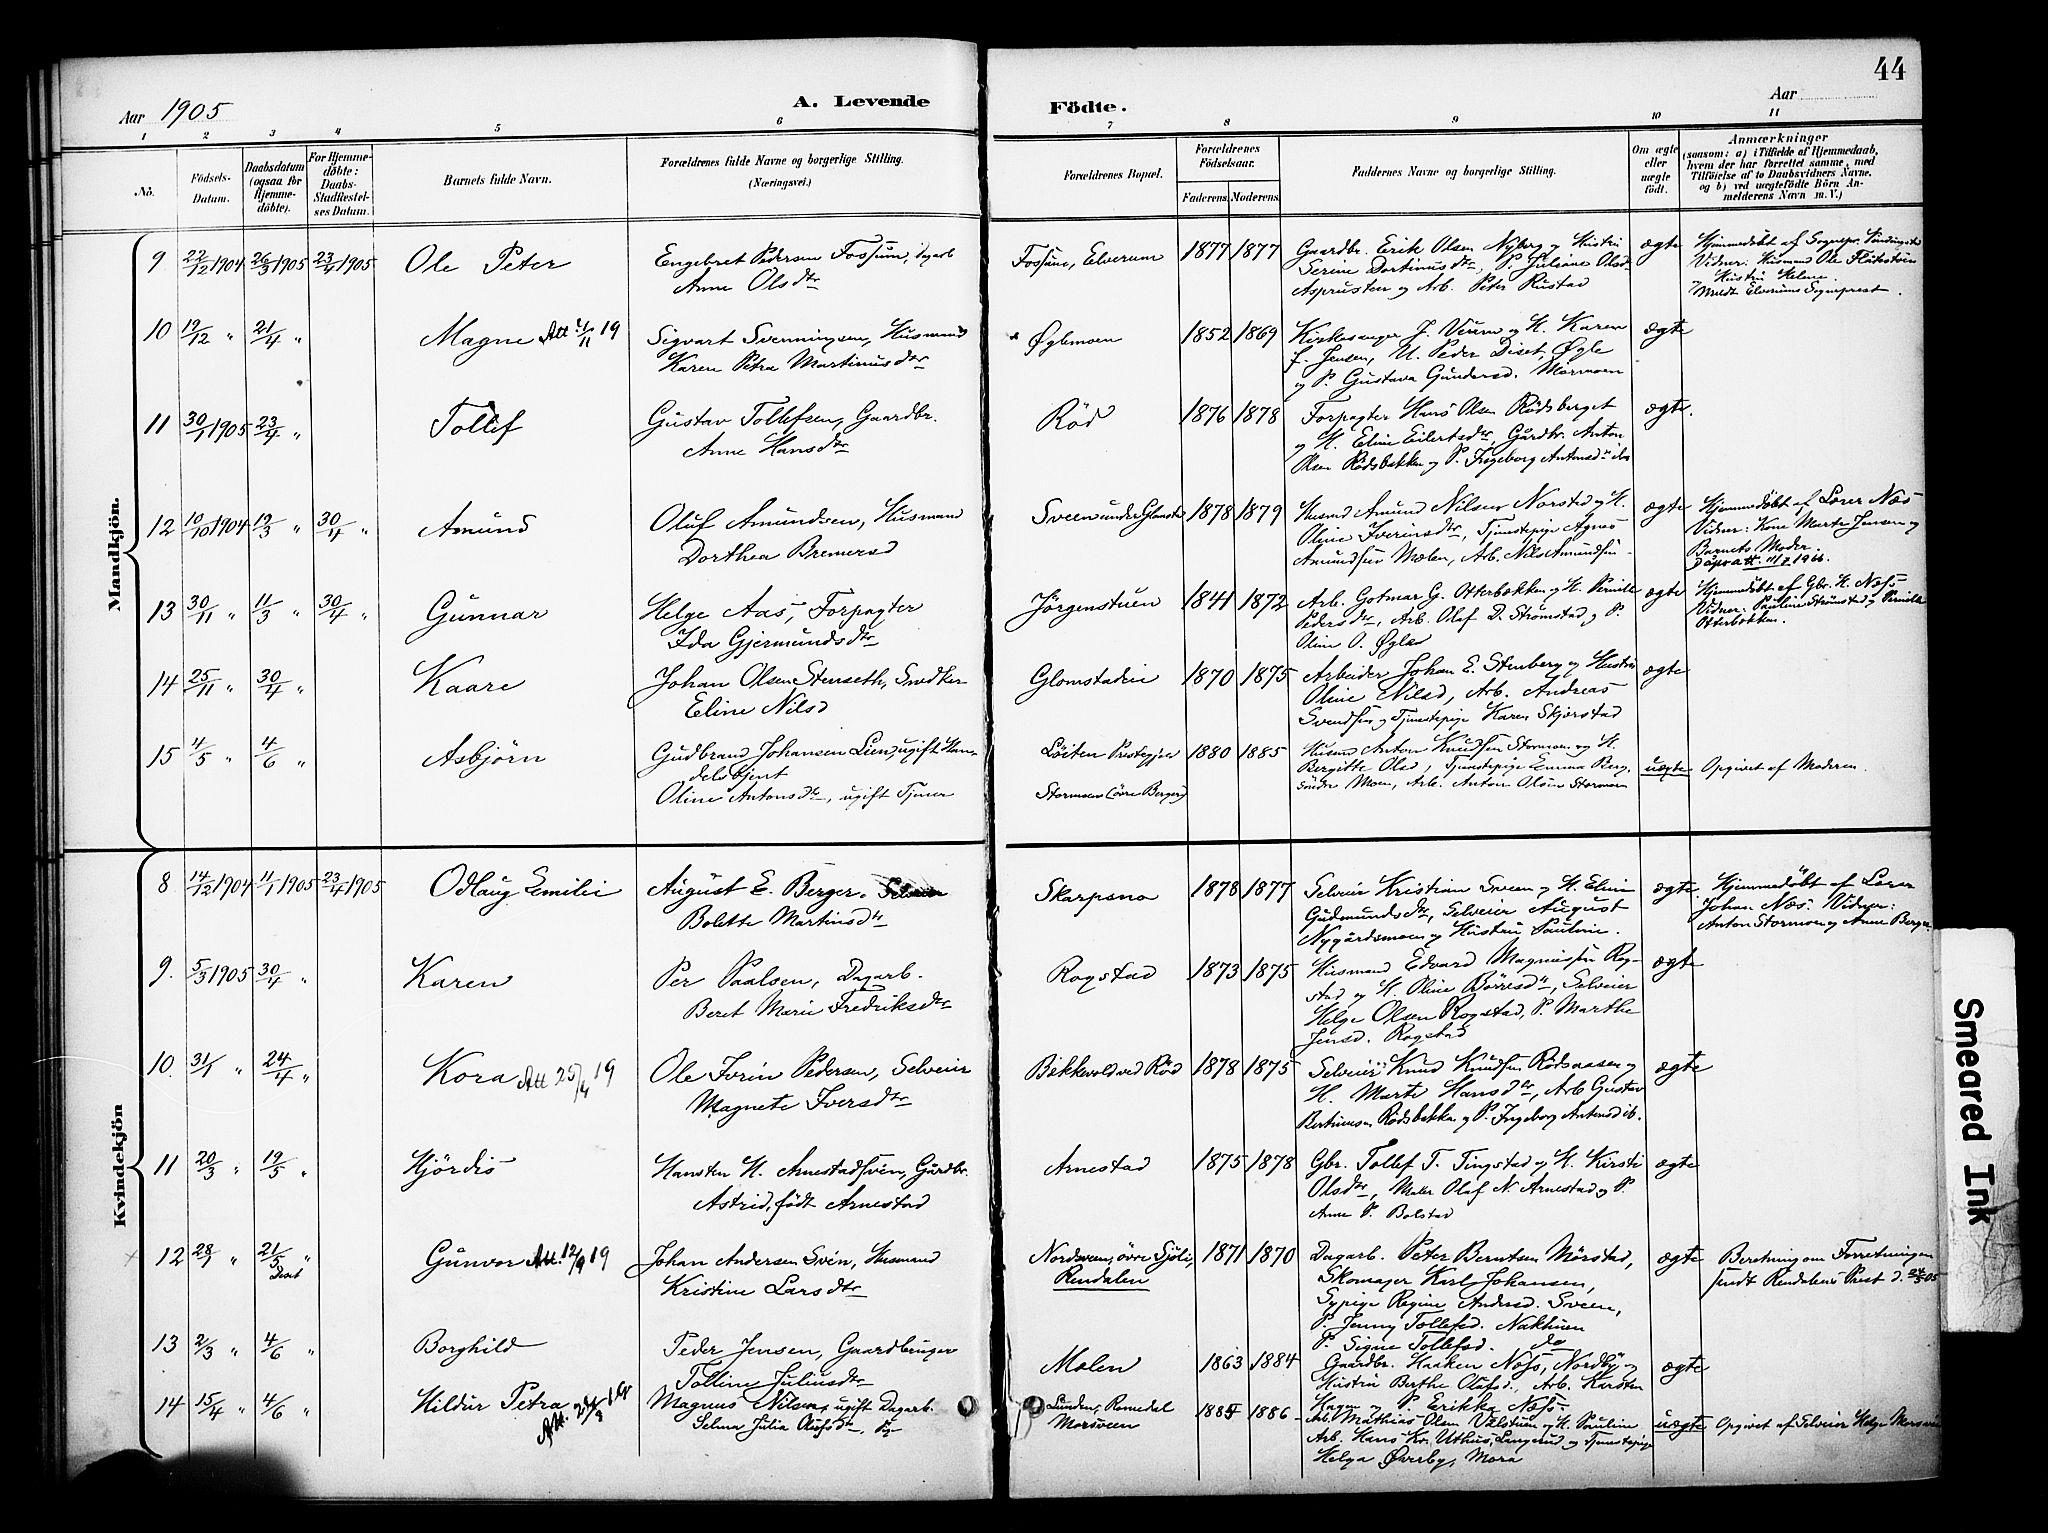 44
Aar 1905
A. Levende
Födte.
Aar
1 2 3 4 5 6 7 8 9 10 11
No.
Födsels-Datum.
Daabsdatum (ogsaa for Hjemmedöbte).
For Hjemmedöbte: Daabs-Stadfæstelses Datum.
Barnets fulde Navn.
Forældrenes fulde Navne og borgerlige Stilling.
(Næringsvei.)
Forældrenes Bopæl.
Forældrenes Födselsaar.
Faderens. Moderens.
Faddernes Navne og borgerlige Stilling.
Om ægte eller uægte födt.
Anmærkninger
(saasom: a) i Tilfælde af Hjemmedaab, hvem der har forrettet samme, med Tilföielse af to Daabsvidners Navne, og b) ved uægtefödte Börn Anmelderens Navn m. V.)
Mandkjön.
9 22/12 1904 26/3 1905 23/4 1905 Ole Peter
Engebret Pedersen Fossum, Dagarb
Anne Olsdtr
Fossum, Elverum 1877 1877
Gaardbr. Erik Olsen Nyberg og Hustru
Serene Dortinusdtr, P. Juliane Olsd.
Asprusten og Arb. Peter Rustad
ægte
Hjemmedöbt af Sognepr.
Vidner: Husmand Ole
Hustru Helene.
Meldt Elverums Sogneprest.
10 19/12 " 21/4 " Magne Att 4/11 19
Sigvart Svenningsen, Husmand
Karen Petra Martinusdtr
Øglemoen 1852 1869
Kirkesanger J. Verum og H. Karen
f. Jensen, U. Peder Diset, Øgle
og P. Gustava Gundersd. Mormoen
ægte
11 30/1 1905 23/4 " Tollef
Gustav Tollefsen, Gaardbr.
Anne Hansdtr
Röd 1876 1878
Forpagter Hans Olsen Rödsberget
og H. Eline Eilertsdtr, Gårdbr. Anton
Olsen Rödsbakken og P. Ingeborg Antonsdtr ibd
ægte.
12 10/10 1904 19/3 " 30/4 " Amund
Oluf Amundsen, Husmand
Dorthea Bremersd
Sveen under Glomstad 1878 1879
Husmd Amund Nilsen Norstad og H.
Oline Iverinsdtr, Tjenestepige Agnes
Amundsen Mælen, Arb. Nils Amundsen
ægte
Hjemmedöbt af Lærer Næs
Vidner: Kone Marte Jensen og
Barnets Moder.
13 30/11 " 11/3 " 30/4 " Gunnar
Helge Aas, Forpagter
Ida Gjermundsdtr
Jörgenstuen 1841 1872
Arb. Gotmar G. Otterbækken og H. Pernille
Pedersdtr, Arb. Olaf D. Strømstad, og P.
Oline O. Øglen
ægte
Hjemmedöbt af Gbr. H. Næss
Vidner: Pauline Strømstad og Pernille
Otterbækken.
14 25/11 " 30/4 " Kaare
Johan Olsen Stenseth, Snedker
Eline Nilsd
Glomstadeie 1870 1875
Arbeider Johan E. Stenberg og Hustru
Oline Nilsd, Arb. Andreas
Svendsen og Tjenestepige Karen Skjærstad
ægte
15 4/5 " 4/6 " Asbjörn
Gudbrand Johansen Lien, ugift Han-
delsbjent
Oline Antonsdtr, ugift Tjener
Löiten Prestegjeld
Stormoen (övre Berger) 1880 1885
Husmd Anton Knudsen Stormoen og H.
Bergitte Olsd, Tjenestepige Emma Berg,
söndre Moen, Arb. Anton Olsen Stormoen
uægte
Opgivet af Moderen.
Kvindekjön
8 14/12 1904 11/1 1905 23/4 1905 Odlaug Emilie
August E. Berger. Selveier
Bolette Martinsdtr
Skarpsno 1878 1877
Selveier Kristian Sveen og H. Eline
Gudmundsdtr, Selveier August
Nygårdsmoen og Hustru Pauline.
ægte
Hjemmedöbt af Lærer
Johan Næs. Vidner:
Anton Stormoen og Anne Berger
9. 5/3 1905 30/4 " Karen
Per Paalsen, Dagarb.
Beret Marie Fredriksdtr
Rogstad 1873 1875
Husmand Edvard Magnussen Rog-
stad og H. Oline Börresdtr, Selveier
Helge Olsen Rogstad, P. Marthe
Jensd. Rogstad
ægte
10. 31/1 " 24/4 " Kora Att 25/4 19
Ole Iverin Pedersen, Selveier
Magnete Iversdtr
Bekkevold ved Röd 1878 1875
Selveier Knud Knudsen Rödsaasen og
H. Marte Hansdtr, Arb Gustav
Bertinusen Rödsbakken og P. Ingeborg Antonsd ib.
ægte
11 20/3 " 19/5 " Hjördis
Hansten H. Arnestadsveen, Gårdbr.
Astrid, født Arnestad
Arnestad 1875 1878
Gbr. Tollef T. Tingstad og H. Kirsti
Olsdtr, Maler Olaf N. Arnestad og P.
Anne P. Bolstad
ægte
12 28/1 " 21/5 " Gunvor Att. 12/9 19
Johan Andersen Svén, Husmand
Kristine Larsdtr
Nordsveen, övre Sjöli,
Rendalen 1871 1870
Dagarb. Peter Berntsen Mörstad,
Skomager Karl Johansen,
Sypige Regine Andersd. Sveen,
P. Jenny Tollefsd. Nakhuen
P. Signe Tollefsd. do
ægte
Beretning om Forretningen
sendt Rendalens Prest d. 24/5 05
13 2/3 " 4/6 " Borghild
Peder Jensen, Gaardbruger
Tolline Juliusdtr
Molen 1863 1884
Gaardbr. Haaken Næss, Nordby og
Hustru Berthe Olafsd., Arb. Karsten
Hagen og P. Erikka Næss.
ægte
14 15/4 " 4/6 " Hildur Petra
Magnus Nilsen, ugift Dagarb.
Selma Julia Olufsdtr, Pg
Lunden, Romedal
Morsveen 1885 1886
Arb. Mathias Olsen Ulstuen og H. Pauline
Arb. Hans Kr. Uthus, Langerud og Tjenestepige
Helga Øverby, Mora
uægte
Opgivet af Selveier Helge Morsveen
Smeared Ink